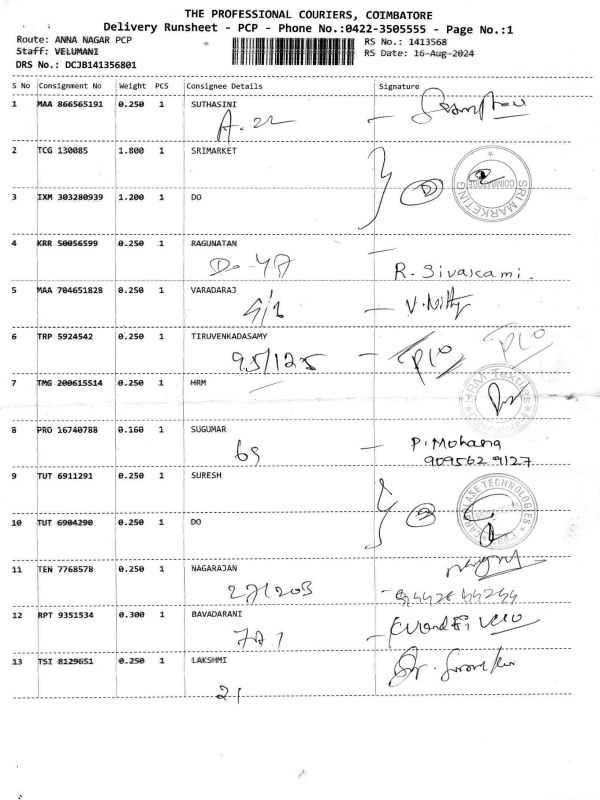 THE PROFESSIONAL COURIERS, COIMBATORE
Delivery Runsheet - PCP - Phone No.:0422-3505555 - Page No.:1
Route: ANNA NAGAR PCP RS No.: 1413568
Staff: VELUMANI RS Date: 16-Aug-2024
DRS No.: DCJB141356801
S No Consignment No Weight PCS Consignee Details Signature
1 MAA 866565191 0.250 1 SUTHASINI
A-22
2 TCG 130085 1.800 1 SRIMARKET
SRI MARKETING COIMBATORE
3 IXM 303280939 1.200 1 DO
4 KRR 50056599 0.250 1 RAGUNATAN
R. Sivakami.
5 MAA 704651828 0.250 1 VARADARAJ
6 TRP 5924542 0.250 1 TIRUVENKADASAMY
95/125
7 TMG 200615514 0.250 1 HRM
HRM Textiles
8 PRO 16740788 0.160 1 SUGUMAR
P. Mohana
9095629127
9 TUT 6911291 0.250 1 SURESH
TECHNOLOGIES
10 TUT 6904290 0.250 1 DO
11 TEN 7768578 0.250 1 NAGARAJAN
27/203
12 RPT 9351534 0.300 1 BAVADARANI
7A1
13 TSI 8129651 0.250 1 LAKSHMI
21